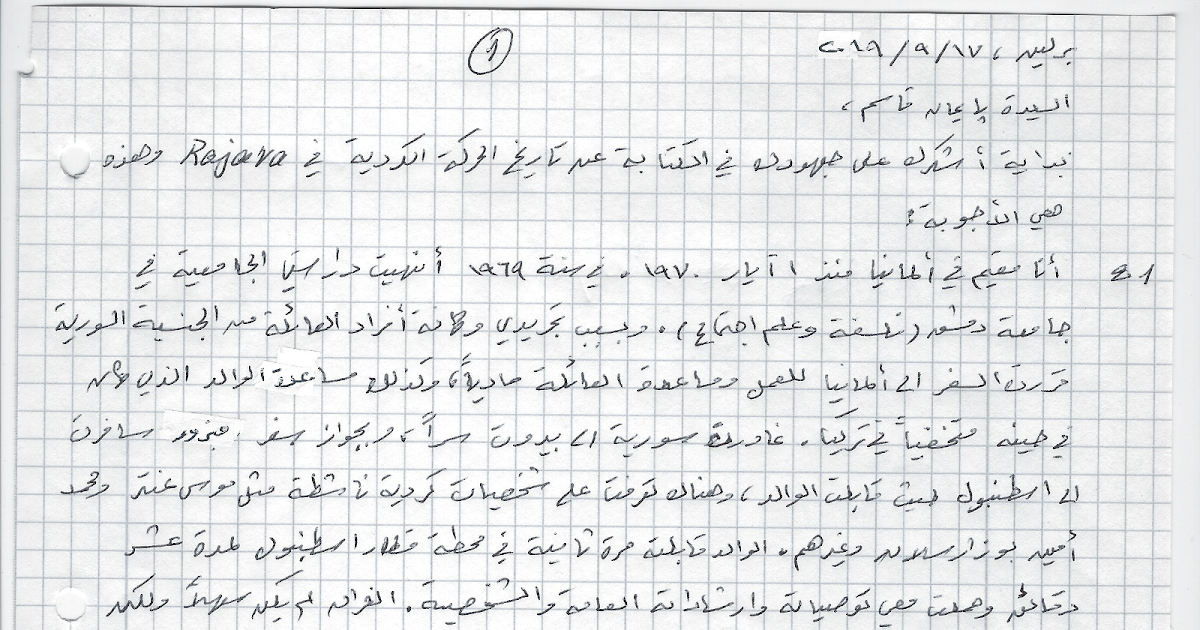 1
برلين ، ٢٠١٩/٩/١٧
السيدة پلا يمان قاسم ،
بداية أشكرك على جهودك في الكتابة عن تاريخ الحركة الكردية في Rojava وهذه
هي الأجوبة :
ج1 أنا مقيم في ألمانيا منذ ١ آيار ١٩٧٠ . في سنة ١٩٦٩ أنهيت دراستي الجامعية في
جامعة دمشق (فلسفة وعلم اجتماع) . وبسبب تجريدي وكافة أفراد العائلة من الجنسية السورية
قررت السفر الى ألمانيا للعمل ومساعدة العائلة مادياً، وكذلك مساعدة الوالد الذي كان
في حينه متخفياً في تركيا . غادرت سورية الى بيروت سراً ، وبجواز سفر مزور سافرت
الى اسطنبول حيث قابلت الوالد ، وهناك تعرفت على شخصيات كردية ناشطة مثل موسى عنتر ومحمد
أمين بوزارسلان وغيرهم . الوالد قابلته مرة ثانية في محطة قطار اسطنبول لمدة عشر
دقائق وحملت معي توصياته وارشاداته العامة والشخصية . الفراق لم يكن سهلاً ولكن